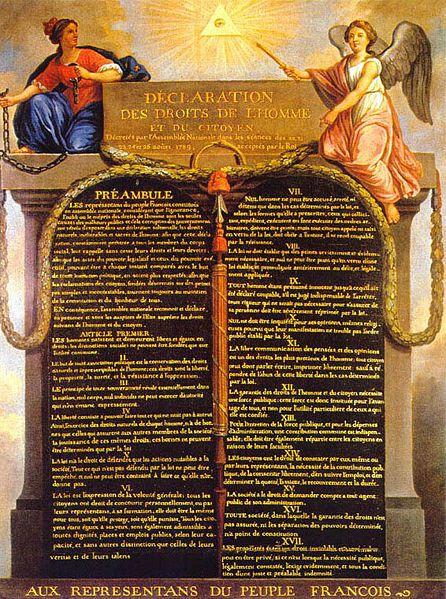 DÉCLARATION
DES DROITS DE L'HOMME
ET DU CITOYEN,
Décretés par l'Assemblée Nationale dans les séances des 20, 21,
23, 24 et 26 août 1789, acceptés par le Roi
PRÉAMBULE
LES représentans du peuple François, constitués
en assemblée nationale, considérant que l'ignorance,
l'oubli ou le mépris des droits de l'homme sont les seules
causes des malheurs publics et de la corruption des gouvernemens
ont résolu d'exposer dans une déclaration solemnelle, les droits
naturels, inaliénables et sacrés de l'homme; afin que cette décla-
ration, constamment présente à tous les membres du corps
social, leur rappelle sans cesse leurs droits et leurs devoirs;
afin que les actes du pouvoir législatif et ceux du pouvoir exé-
cutif, pouvant être à chaque instant comparés avec le but
de toute institution politique, en soient plus respectés; afin que
les réclamations des citoyens, fondées désormais sur des prin-
cipes simples et incontestables, tournent toujours au maintien
de la constitution et du bonheur de tous.
EN conséquence, l'assemblée nationale reconnoit et déclare,
en présence et sous les auspices de l'Etre suprême les droits
suivans de l'homme et du citoyen.
ARTICLE PREMIER.
LES hommes naissent et demeurent libres et égaux en
droits, les distinctions sociales ne peuvent être fondées que sur
l'utilité commune.
II.
LE but de toute association politique est la conservation des droits
naturels et imprescriptibles de l'homme; ces droits sont la liberté,
la propriété, la sureté, et la résistance à l'oppression.
III.
LE principe de toute souveraineté réside essentiellement dans
la nation, nul corps, nul individu ne peut exercer d'autorité
qui n'en émane expressément.
IV.
LA liberté consiste à pouvoir faire tout ce qui ne nuit pas à autrui
Ainsi, l'exercice des droits naturels de chaque homme, n'a de bor-
nes que celles qui assurent aux autres membres de la société
la jouissance de ces mêmes droits; ces bornes ne peuvent
être déterminées que par la loi
V.
LA loi n'a le droit de défendre que les actions nuisibles à la
société. Tout ce qui n'est pas défendu par la loi ne peut être
empêché, et nul ne peut être contraint à faire ce qu'elle n'or-
donne pas.
VI.
LA loi est l'expression de la volonté générale; tous les
citoyens ont droit de concourir personnellement, ou par
leurs représentans, à sa formation; elle doit être la même
pour tous, soit qu'elle protege, soit qu'elle punisse. Tous les ci-
toyens étant égaux à ses yeux, sont également admissibles à
toutes dignités, places et emplois publics, selon leur ca-
pacité, et sans autres distinction que celles de leurs
vertus et de leurs talens.
VII.
NUL homme ne peut être accusé, arreté, ni
détenu que dans les cas déterminés par la loi, et
selon les formes qu'elle a prescrites, ceux qui sollici-
tent, expédient, exécutent ou font exécuter des ordres ar-
bitraires, doivent être punis; mais tout citoyen appelé ou saisi
en vertu de la loi, doit obéir à l'instant, il se rend coupable
par la résistance.
VIII.
LA loi ne doit établir que des peines strictement et évidem-
ment nécessaire, et nul ne peut être puni qu'en vertu d'une
loi établie et promulguée antérierement au délit, et légale-
ment appliquée.
IX.
TOUT homme étant présumé innocent jusqu'à ce qu'il ait
été déclaré coupable, s'il est jugé indispensable de l'arrêter,
toute rigueur qui ne serait pas nécessaire pour s'assurer de
sa personne doit être sévèrement réprimée par la loi.
X.
NUL ne doit être inquiété pour ses opinions, mêmes religi-
euses pourvu que leur manifestation ne trouble pas l'ordre
public établi par la loi.
XI.
LA libre communication des pensées et des opinions
est un des droits les plus précieux de l'homme; tout citoyen
peut donc parler écrire, imprimer librement sauf à ré-
pondre de l'abus de cette liberté dans les cas déterminés
par la loi.
XII.
LA garantie des droits de l'homme et du citoyen nécessite
une force publique; cette force est donc instituée pour l'avan-
tage de tous, et non pour l'utilité particulière de ceux a
qui elle est confiée.
XIII.
POUR l'entretien de la force publique, et pour les dépenses
d'administration, une contribution commune est indispen-
sable; elle doit être également répartie entre les citoyens en
raison de leurs facultés.
XIV.
LES citoyens ont le droit de constater par eux même ou
par leurs représentans, la nécessité de la contribution pub-
lique, de la consentir librement, d'en suivre l'emploi, et d'en
déterminer la quotité, l'assiette, le recouvrement et la durée.
XV.
LA société a le droit de demander compte a tout agent
public de son administration.
XVI.
TOUTE société, dans laquelle la garantie des droits n'est
pas assurée, ni la séparation des pouvoirs déterminée,
n'a point de constitution
XVII.
LES propriétés étant un droit inviolable et sacré, nul ne
peut en être privé, si ce n'est lorsque la nécessité publique,
légalement constatée, l'exige évidemment, et sous la condi-
tion d'une juste et préalable indemnité.
AUX REPRESENTANS DU PEUPLE FRANCOIS